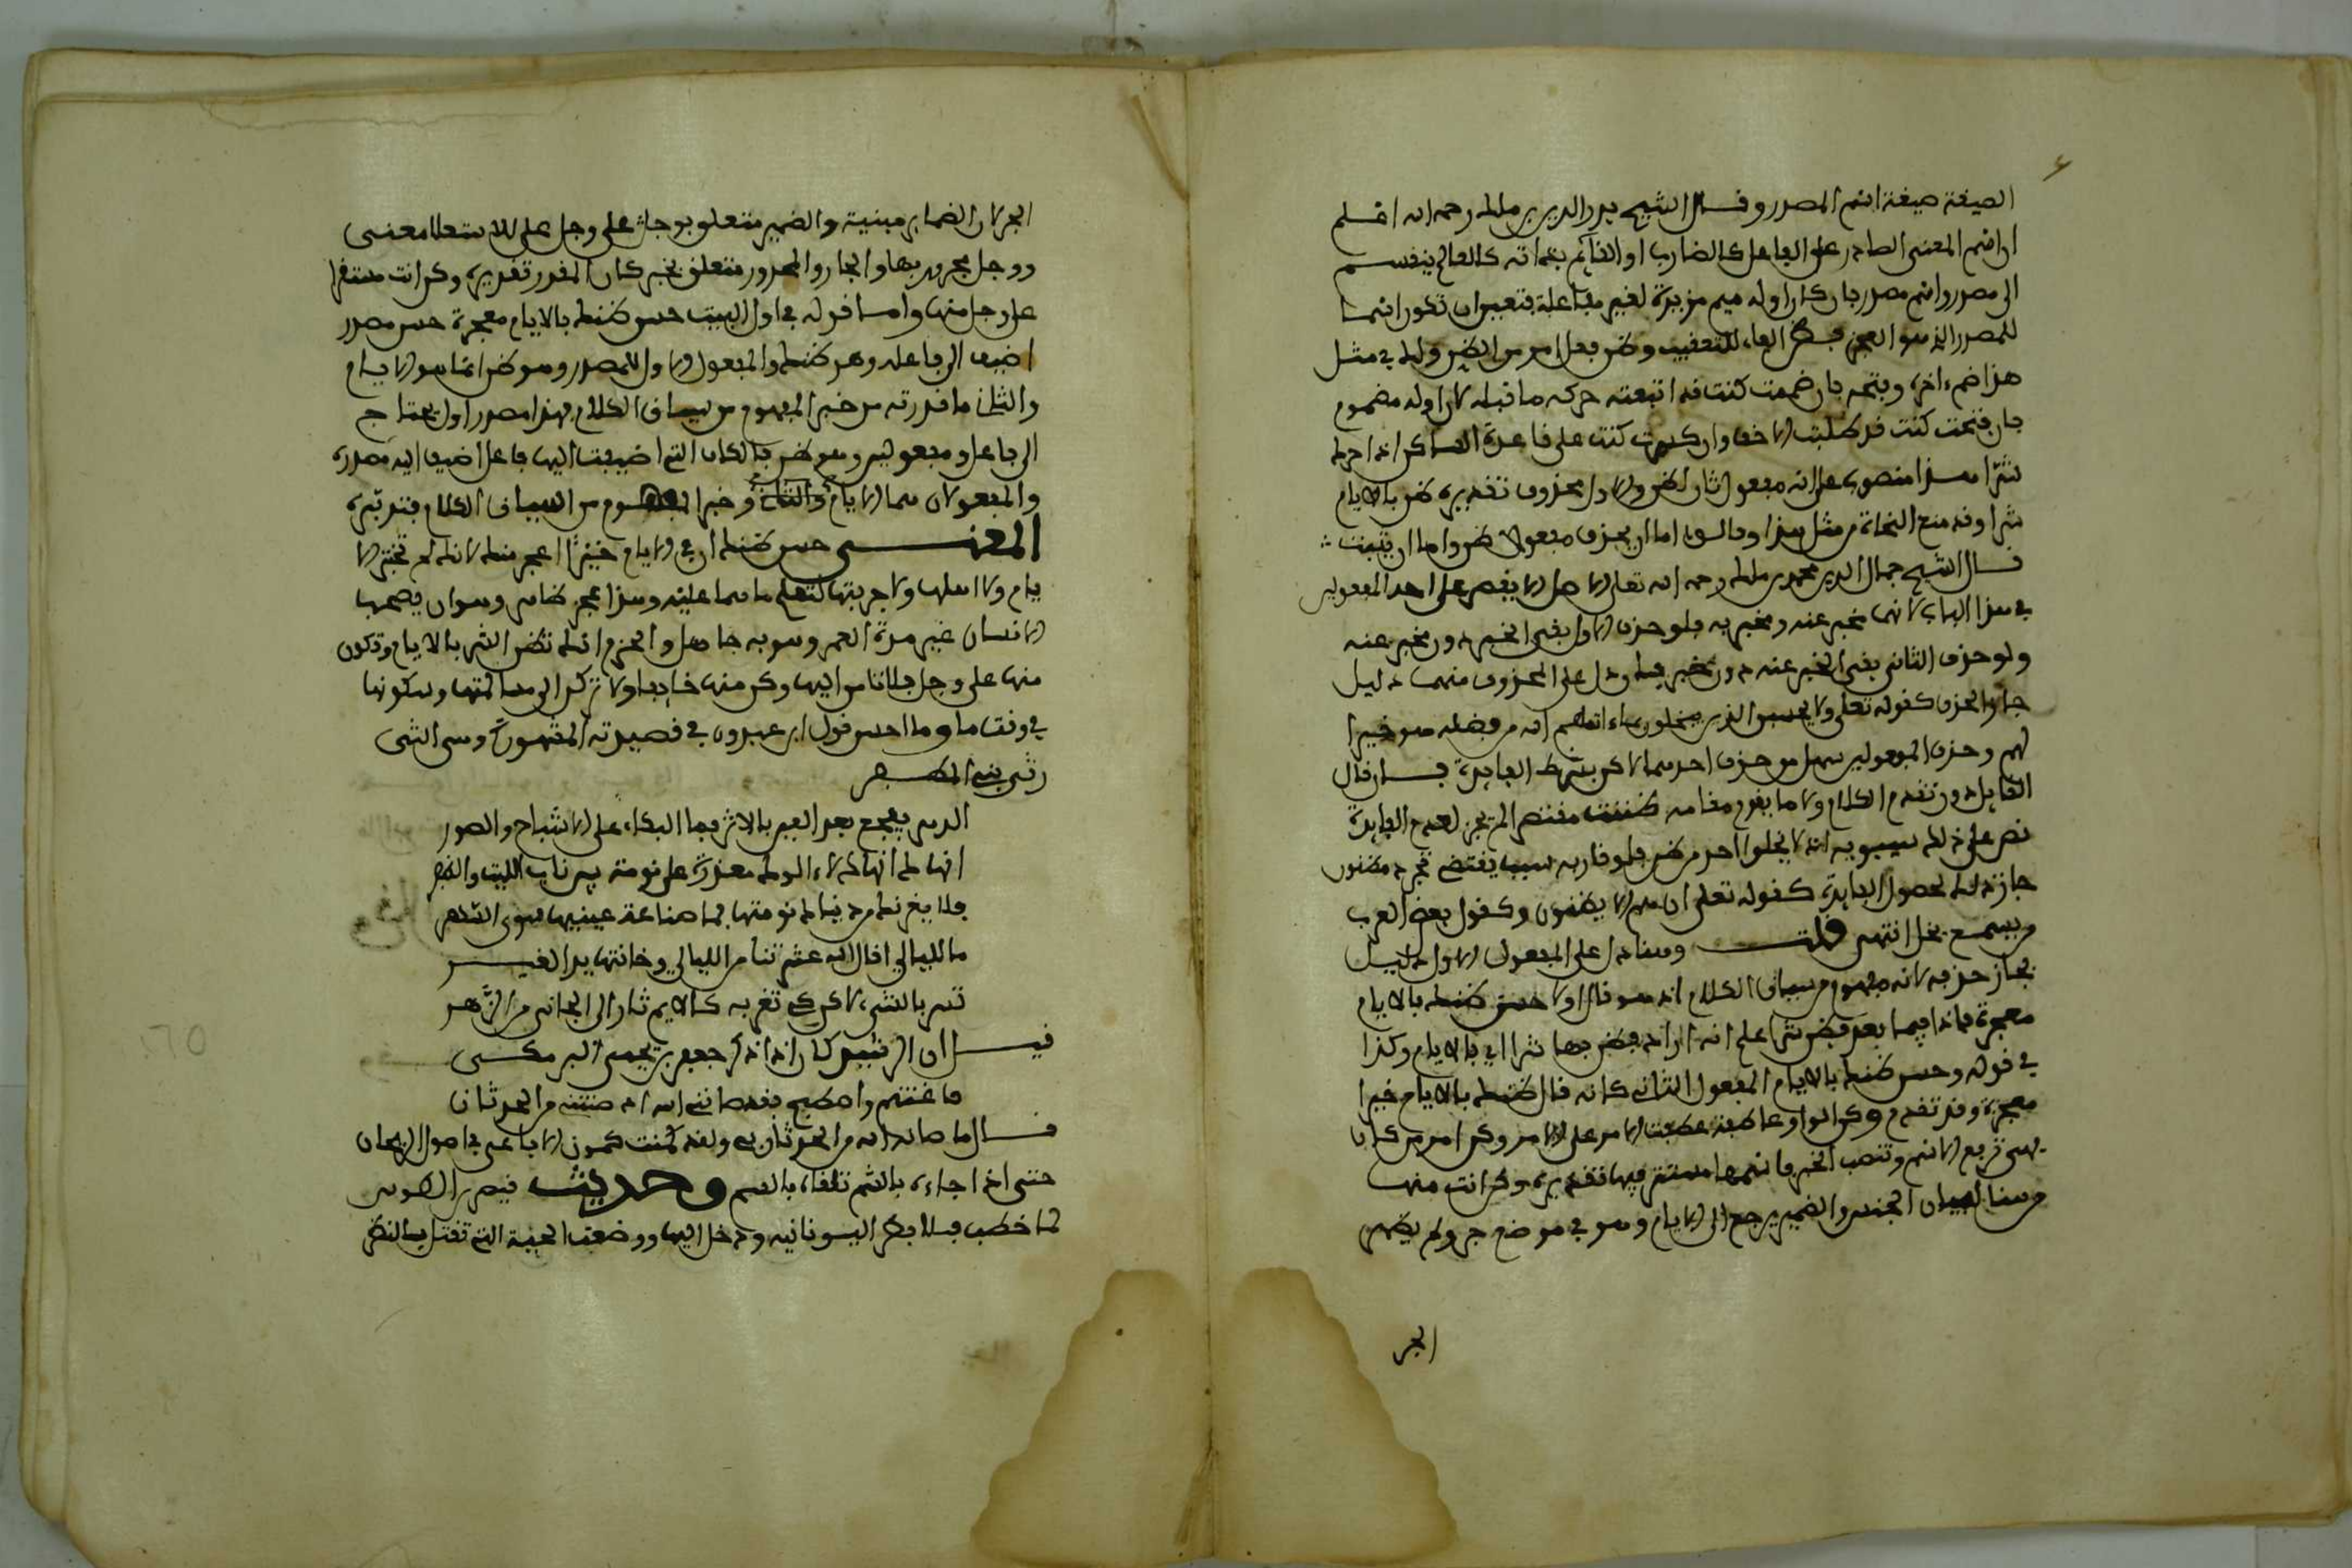 الصيغة صيغة اسم المصدر وقال الشيخ بدر الدين بن ملك رحمه الله اعلم
ان اسم المعنى الصادر على الفاعل كالضارب او القائم بذاته كالعالم ينقسم
الى مصدر واسم مصدر فان كان اوله ميم مزيدة لغير مفاعلة فتعين ان تكون اسما
للمصدر الذي هو العجز فظن الفاء للتعقيب وظن فعل امر من الظن ولك في مثل
هذا ضم اخره وفتحه فان ضممت كنت قد اتبعته حركة ما قبله لان اوله مضموم
فان فتحت كنت قد طلبت الاخف وان كسرت كنت على قاعدة الساكن اذا حرك
شرا هذا منصوب على انه مفعول ثان لظن والاول محذوف تقديره ظن بالايام
شرا وقد منع النحاة من مثل هذا وقالوا اما ان يحذف مفعولا ظن واما ان يثبتا
قال الشيخ جمال الدين محمد بن ملك رحمه الله تعالى الاصل الا يقتصر على احد المفعولين
في هذا الباب لانهما مخبر عنه ومخبر به فلو حذف الاول بقي الخبر دون مخبر عنه
ولو حذف الثاني بقي المخبر عنه دون مخبر فان دل على المحذوف منهما دليل
جاز الحذف كقوله تعلى ولا يحسبن الذين يبخلون بما اتاهم الله من فضله هو خيرا
لهم وحذف المفعولين سهل من حذف احدهما لاكن بشرط الفايدة فان قال
القايل دون تقدم الكلام ولا ما يقوم مقامه ظننت مقتصرا لم يجز لعدم الفايدة
نص على ذلك سيبويه انه لا يخلوا احد من ظن فلو قارنه سبب يقتضي تجدد مظنون
جاز ذلك لحصول الفايدة كقوله تعلى ان هم الا يظنون وكقول بعض العرب
من يسمع يخل انتهى قلت وهنا دل على المفعول الاول دليل
فجاز حذفه لانه مفهوم من سياق الكلام اذ هو قال اولا حسن ظنك بالايام
معجزة فاذا فيما بعد فظن شرا علم انه اراد فظن بها شرا اي بالايام وكذا
في قوله وحسن ظنك بالايام المفعول الثاني كانه قال ظنك بالايام خيرا
معجزة وقد تقدم وكن الواو عاطفة عطفت الامر على الامر وكن امر من كان
فهي ترفع الاسم وتنصب الخبر فاسمها مستتر فيها تقديره وكن انت منها
من هنا لبيان الجنس والضمير يرجع الى الايام وهو في موضع جر ولم يظهر
الجر
الجر لان الضماير مبنية والضمير متعلق بوجل على وجل على للاستعلا معنى
ووجل مجرور بها والجار والمجرور متعلق بخبر كان المقدر تقديره وكن انت مستقرا
على وجل منها واما قوله في اول البيت حسن ظنك بالايام معجزة حسن مصدر
اضيف الى فاعله وهو ظنك والمفعول الاول للمصدر وهو ظن انما هو الايام
والثاني ما قدرته من خير المفهوم من سياق الكلام فهذا مصدر اول يحتاج
الى فاعل ومفعولين وهو ظن فالكاف التي اضيفت اليها فاعل اضيف اليه مصدره
والمفعولان هما الايام والثاني وخيرا المفهوم من السياق الكلام فتدبره
المعنى حسن ظنك ان في الايام خيرا عجز منك لانك لم تختبر الا
يام ولا اهلها ولا جربتها لتعلم ما هما عليه وهذا عجز ظاهر وهو ان يصحب
الانسان غير مدة العمر وهو به جاهل والحزم انك تظن الشر بالايام وتكون
منها على وجل فلا تامن اليها وكن منها خايفا ولا تركن الى مسالمتها وسكونها
في وقت ما وما احسن قول ابن عبدون في قصيدته المشهورة وهي التي
رثى بني المظفر
الدهر يفجع بعد العين بالاثر فما البكاء على الاشباح والصور
انهاك انهاك لا الوك معذرة عن نومة بين ناب الليث والظفر
فلا يغرنك من دنياك نومتها فما صناعة عينيها سوى السهر
ما لليالي اقال الله عثرتنا من الليالي وخانتها يد الغير
تسر بالشيء لاكن كي تغر به كالايم ثار الى الجاني من الزهر
قيل ان الرشيد كان اذا ذكر جعفر بن يحيى البرمكي
ما غنته وا بعد ما منته من الحدثان
قال ما صانه الله من الحدثان بي ولقد كمنت كمون الافاعي في اصول الريحان
حتى اذا جاءه بالشم تلقاه بالسم وحديث قيصر
لما خطب قلابطر اليونانيه ودخل اليها ووضعت الحية التي تقتل بالنظر